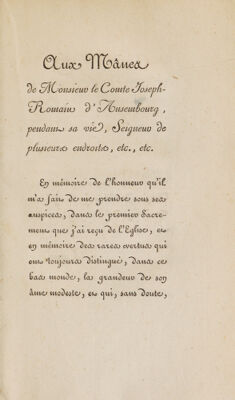 Aux Mânes
de Monsieur le Comte Joseph-
Romain d'Ansembourg,
pendant sa vie, Seigneur de
plusieurs endroits, etc., etc.
En mémoire de l'honneur qu'il
m'a fait de me prendre sous ses
auspices, dans le premier Sacre-
ment que j'ai reçu de l'Eglise, et
en mémoire des rares vertus qui
ont toujours distingué, dans ce
bas monde, la grandeur de son
âme modeste, et qui, sans doute,